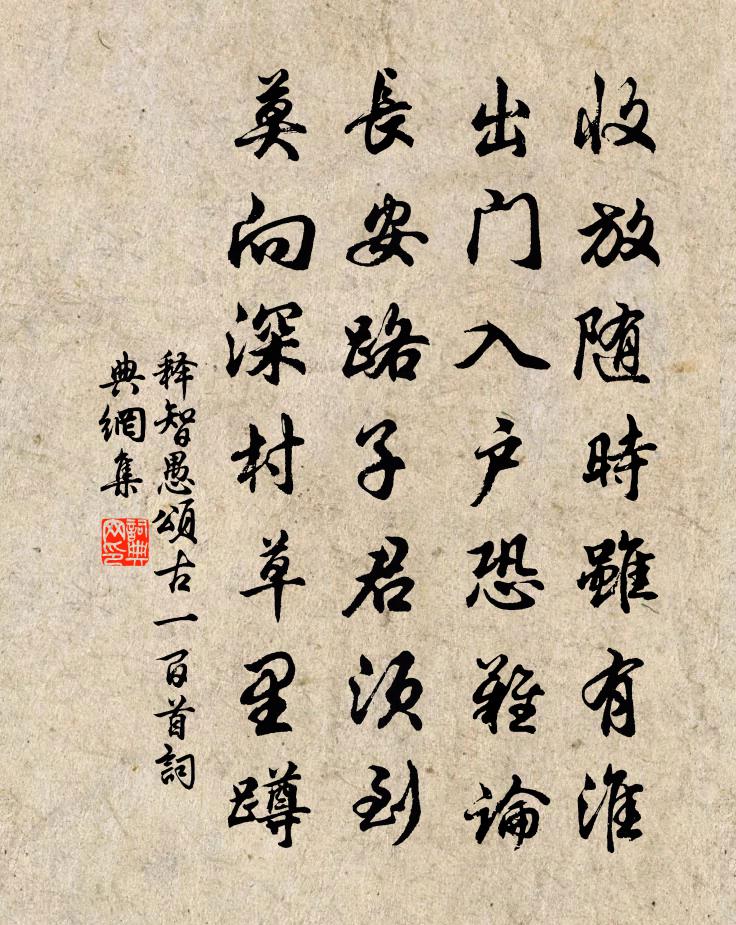 收放随時雖有淮
出门入户恐難論
長安路子君须到
莫向深村草里蹲
释智愚頌古一百首詞
典網集
詞典网印